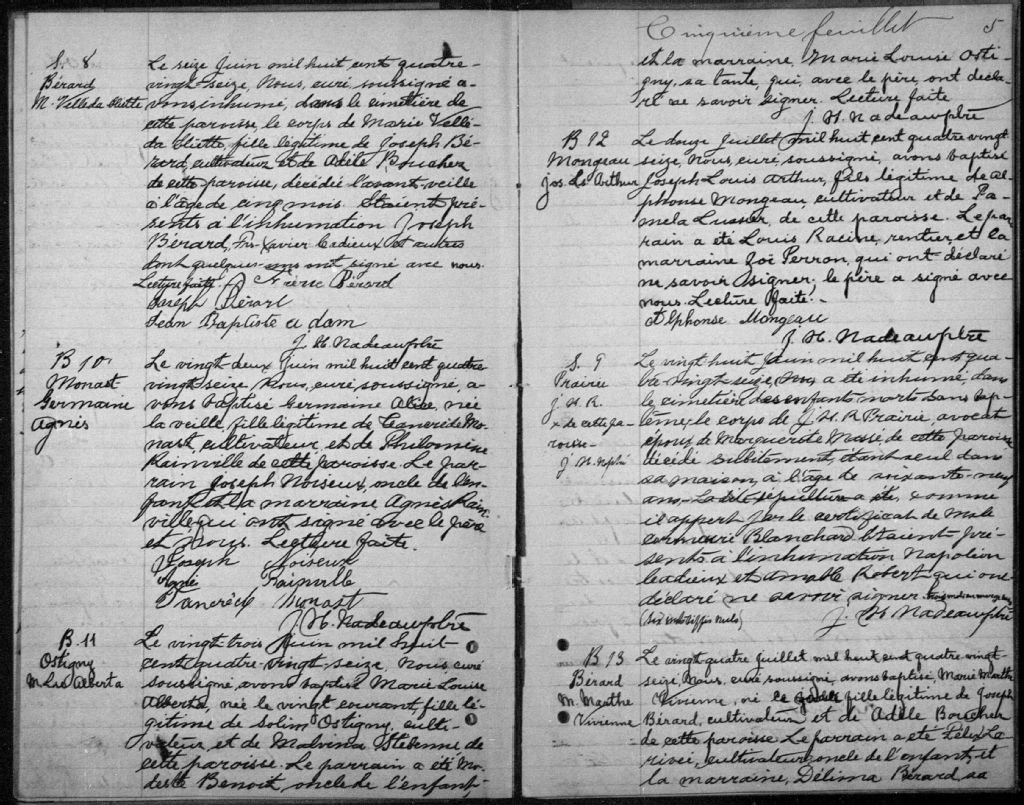 S. 8
Bérard
M. Velleda Eliette
Le seize juin mil huit cent quatre-
vingt-seize, Nous, curé, soussigné a-
vons inhumé, dans le cimetière de
cette paroisse, le corps de Marie Velle-
da Eliette, fille légitime de Joseph Bé-
rard, cultivateur et de Adèle Boucher
de cette paroisse, décédé l'avant-veille
à l'âge de cinq mois. Etaient pré-
sents à l'inhumation Joseph
Bérard, Frs-Xavier Cadieux et autres
dont quelques-uns ont signé avec nous.
Lecture faite. Bérard
Joseph Bérard
Jean Baptiste adam
J. H. Nadeau ptre
B 10
Monast
Germaine
Agnès
Le vingt deux juin mil huit cent quatre
vingt seize Nous, curé, soussigné, a-
vons baptisé Germaine née
la veille, fille légitime de Tancrède Mo-
nast, cultivateur, et de Philomène
Rainville de cette paroisse. Le par-
rain Joseph Noiseux, oncle de l'en-
fant et la marraine Agnès Rain-
ville qui ont signé avec le père
et nous. Lecture faite.
Joseph Noiseux
Agnès Rainville
Tancrède Monast
J. H. Nadeau ptre
B. 11
Ostigny
M Lse Alberta
Le vingt trois juin mil huit
cent quatre-vingt-seize, Nous, curé
soussigné, avons baptisé Marie Louise
Alberta, née le vingt courant, fille lé-
gitime de Solim Ostigny, culti-
vateur, et de Malvina Etienne de
cette paroisse. Le parrain a été Mo-
deste Benoit, oncle de l'enfant,
Cinquième feuillet 5
et la marraine, Marie Louise Osti-
gny, sa tante, qui, avec le père, ont décla-
ré ne savoir signer. Lecture faite
J. H. Nadeau ptre
B 12
Mongeau
Jos. Ls Arthur
Le douze Juillet mil huit cent quatre vingt
seize, Nous, curé, soussigné, avons baptisé
Joseph Louis Arthur, fils légitime de Al-
phonse Mongeau, cultivateur et de Pa-
mela Lussier, de cette paroisse. Le par-
rain a été Louis Racine, rentier, et la
marraine Zoé Perron, qui ont déclaré
ne savoir signer, le père a signé avec
nous. Lecture faite.
Alphonse Mongeau
J. H. Nadeau ptre
S. 9
Prairie
J. H. R.
de cette pa-
roisse
Le vingt huit juin mil huit cent qua-
tre vingt seize, a été inhumé, dans
le cimetière des enfants morts sans bap-
tême, le corps de J. H. R Prairie, avocat
époux de Marguerite Massé de cette paroisse
décédé subitement, étant seul dans
sa maison, à l'âge de soixante-neuf
ans. La dite sépulture a été, comme
il appert par le certificat de Male
Blanchard. Etaient pré-
sents à l'inhumation Napoléon
Cadieux et Robert qui ont
déclaré ne savoir signer.
J. H. Nadeau ptre
B 13
Bérard
M. Marthe
Vivienne
Le vingt quatre juillet mil huit cent quatre vingt
seize, Nous, curé soussigné, avons baptisé, Marie Marthe
Vivienne, né ce fille légitime de Joseph
Bérard, cultivateur et de Adèle Boucher
de cette paroisse. Le parrain a été Félix La-
rivée, cultivateur, oncle de l'enfant, et
la marraine, Délima Bérard, sa